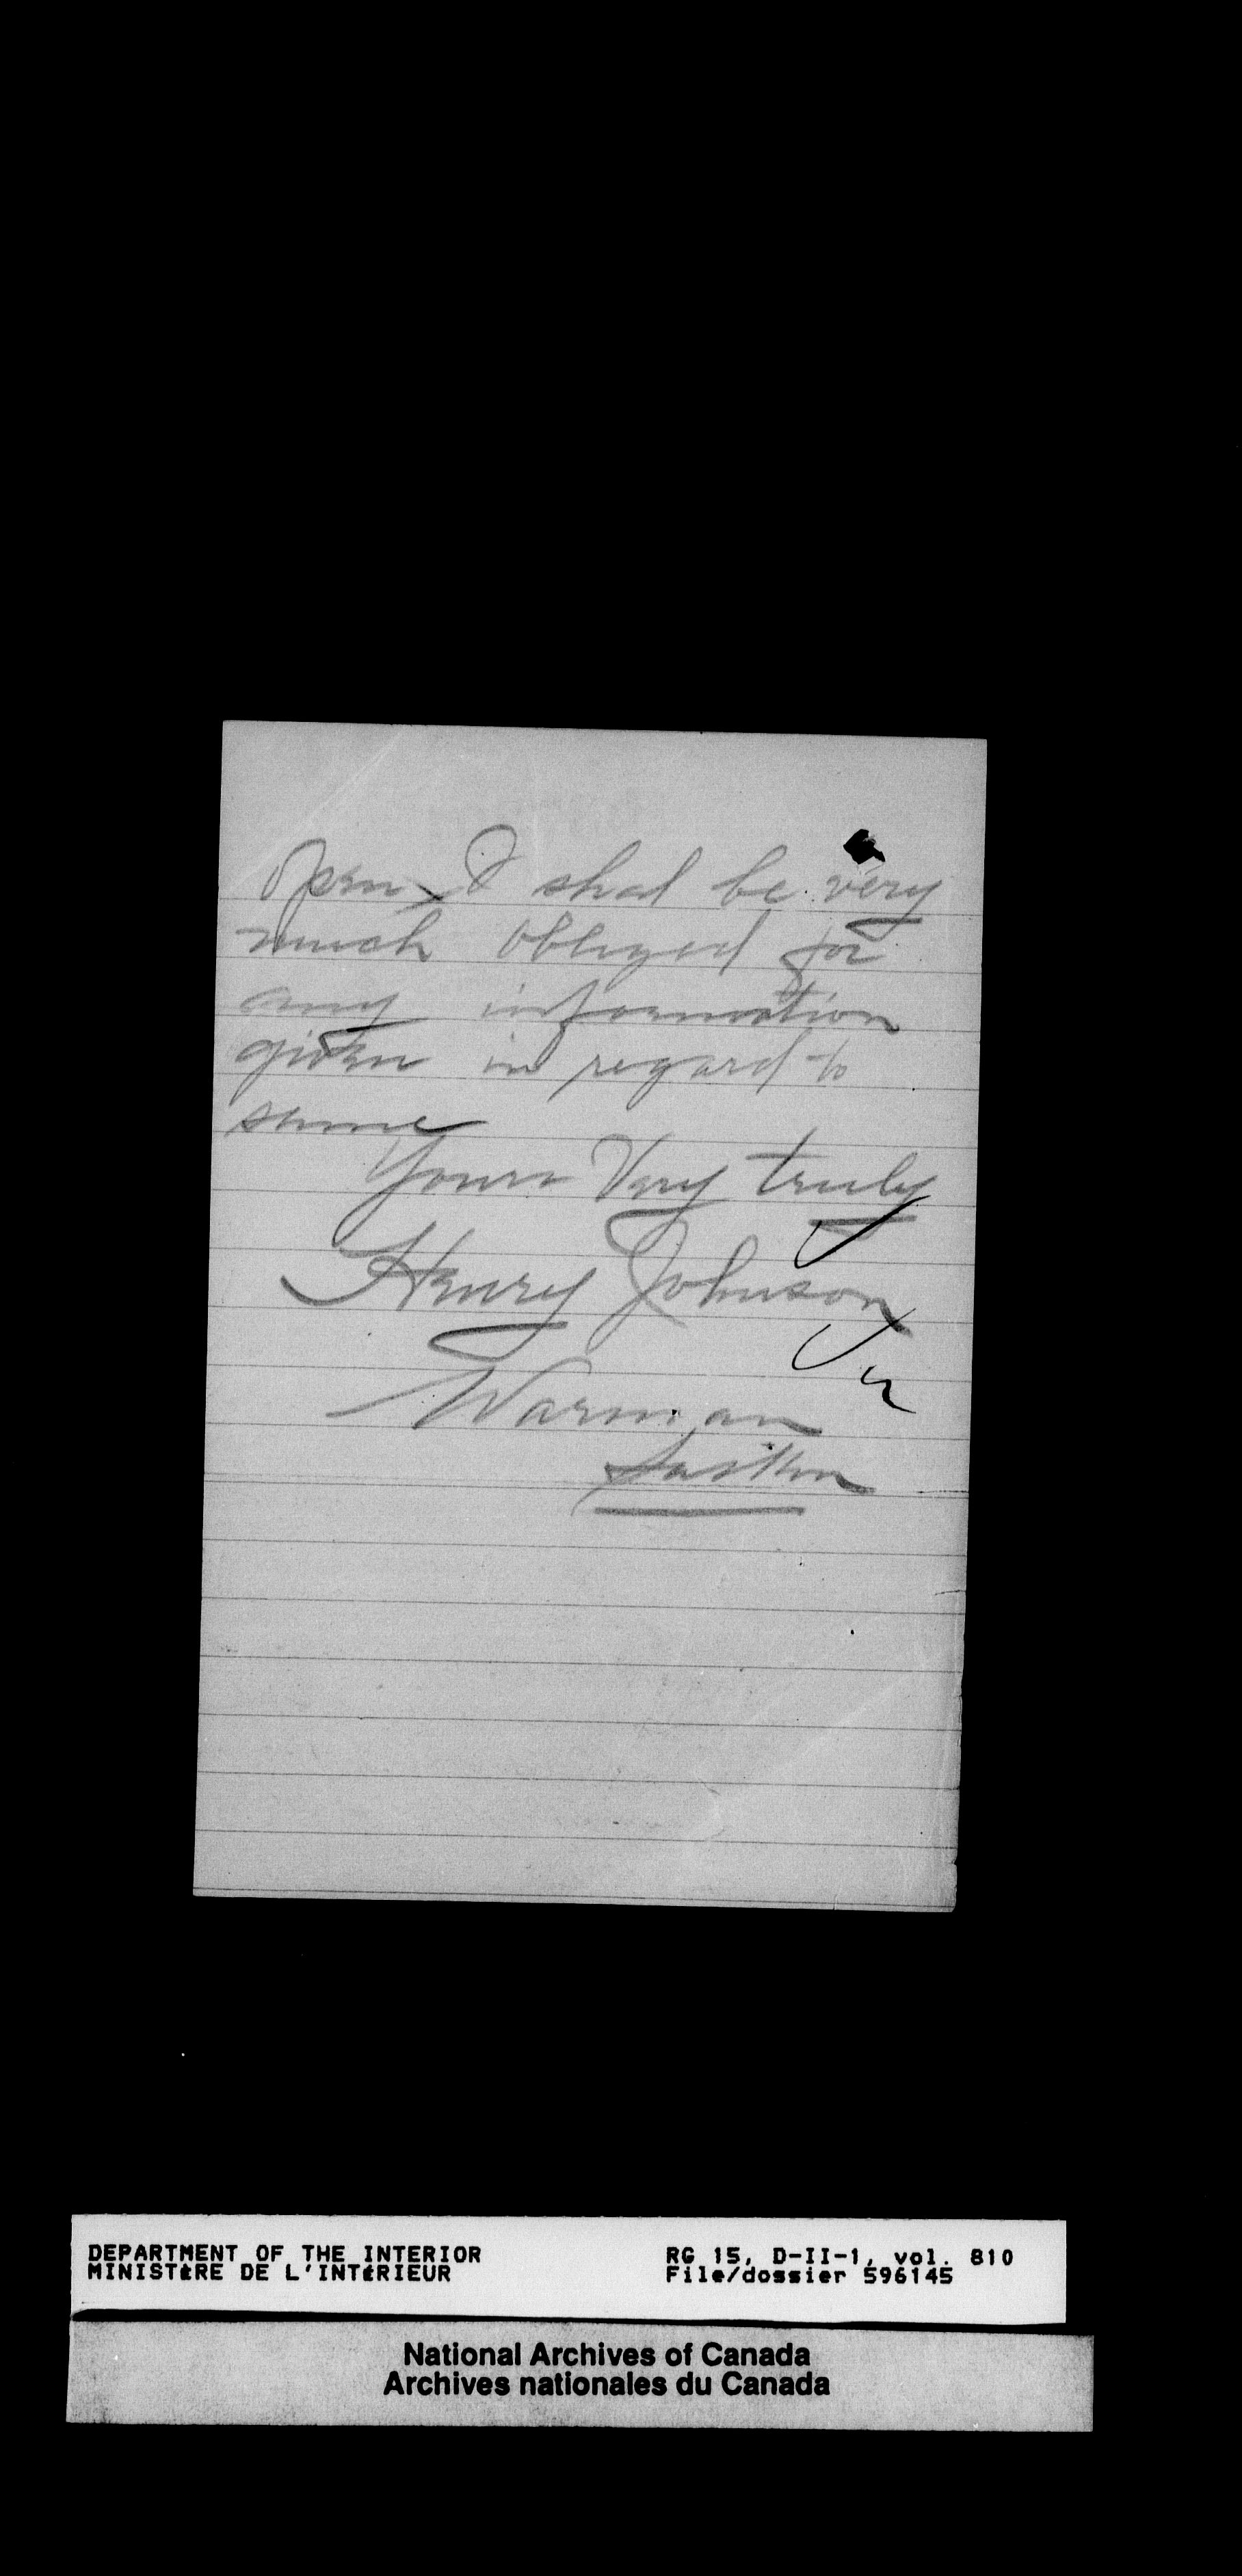 open, I shal be very
much obliged for
any information
given in regard to
same
Yours Very truly
Henry Johnson
Warman
Saskn
DEPARTMENT OF THE INTERIOR
MINISTÈRE DE L'INTÉRIEUR
RG 15, D-II-1, vol. 810
File/dossier 596145
National Archives of Canada
Archives nationales du Canada